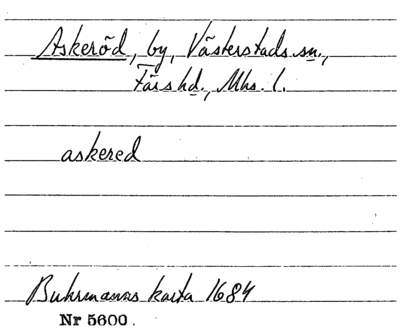 Askeröd, by, Västerstads sn.,
Färs hd., Mhs. l.
askered
Buhrmanns karta 1684
Nr 5600.